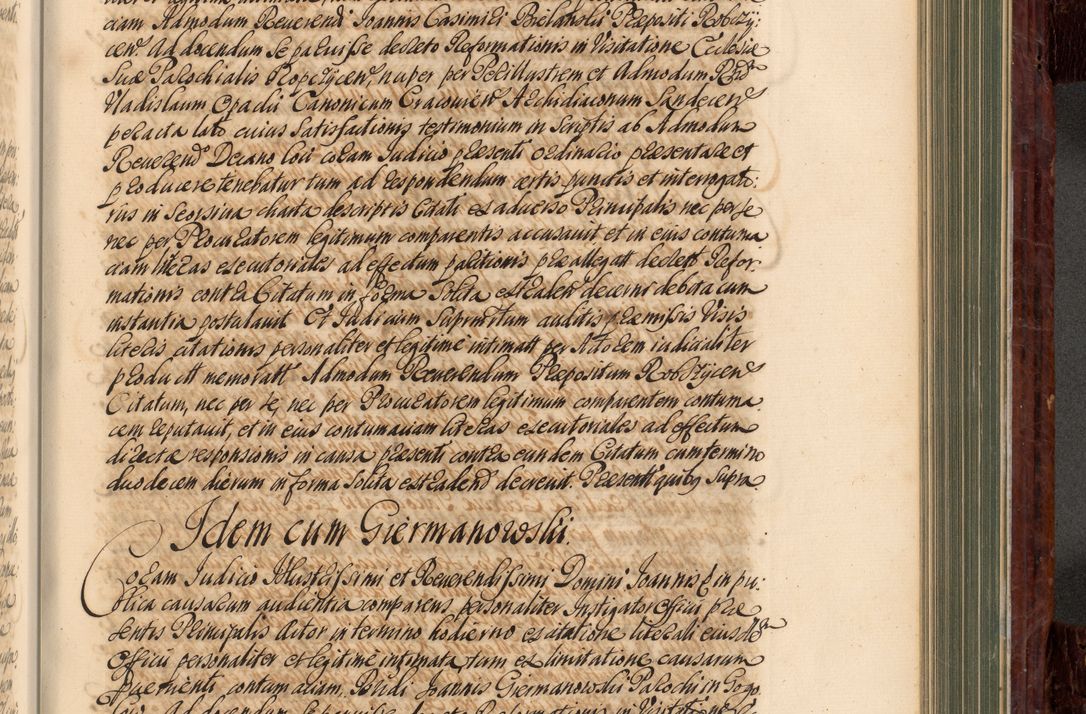 ciam Admodum Reverendi Joannis Casimiri Bielanski Præpositi Robczy:
cen. Ad docendum se paruisse decreto Reformationis in Visitatione Ecclesiæ
Suæ Parochialis Ropczycen nuper per Perillustrem et Admodum Rnd
Vladislaum Opacki Canonicum Cracovien Archidiaconum Sandecens
peracta lato cuius Satisfactionis testimonium in Scriptis ab Admodum
Reverend Decano loci coram Iudicio præsenti ordinario præsentare et
producere tenebatur tum ad respondendum certis punctis et interrogato:
riis in Seorsiva charta descriptis Citati ex adverso Principalis nec per se
nec per Procuratorem legitimum comparentis accusavit et in eius contuma
ciam literas executoriales ad effectum paritionis præallegati decreti Refor:
mationis contra Citatum in forma Solita extraden decerni debita cum
instantia postulavit Et Iudicium Supramtum auditis præmissis Visis
literis citationis personaliter et legitime intimatt per Actorem iudicialiter
productt memoratt Admodum Reverendum Præpositum Robczycens
Citatum, nec per se, nec per Procuratorem legitimum comparentem contuma
cem reputavit, et in eius contumaciam literas executoriales ad effectum
directæ responsionis in causa præsenti contra eundem Citatum cum termino
duodecem dierum in forma Solita extradend decrevit. Præsentt quibq Supra
Idem cum Giermanowski
Coram Iudicio Illustrissimi et Reverendissimi Domini Joannis & in pu:
blica causarum audientia comparens personaliter Instigator Officii præ
sentis Principalis Actor in termino hodierno ex citatione literali eiusdem
Officii personaliter et legitime intimata, tum ex limitatione causarum
præventi, contumaciam Rvdi Joannis Giermanowskii Parochi in Gogo